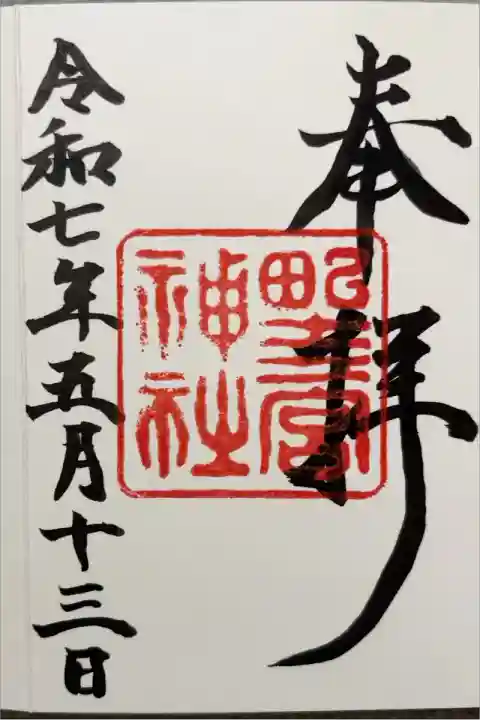 奉拝
神社
令和七年五月十三日